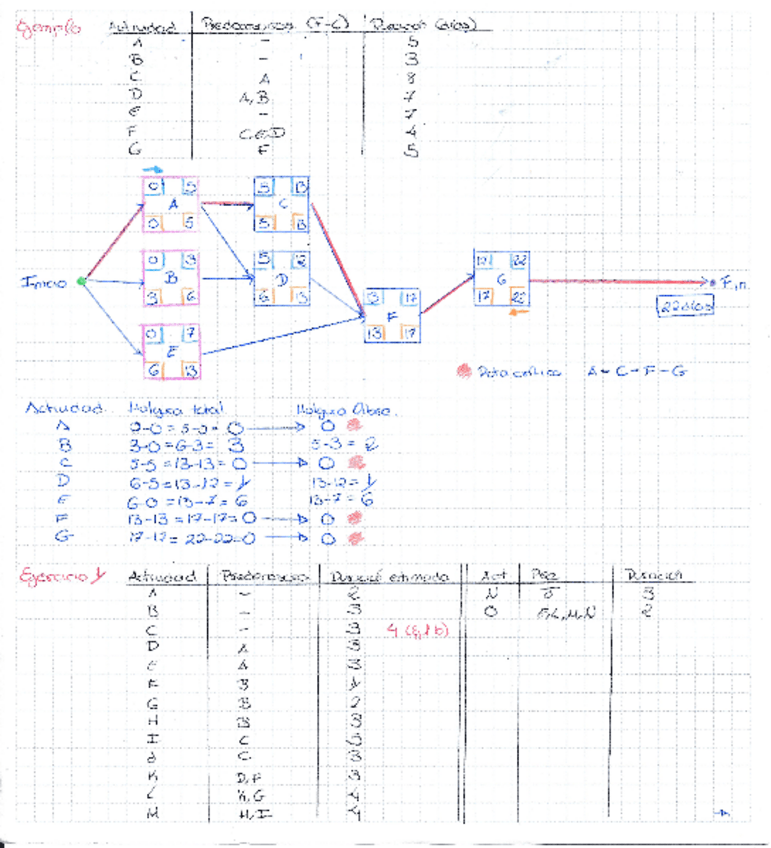 Ejemplo Actividad Predecesoras (F-C) Duración (días)
A - 5
B - 3
C A 8
D A,B 7
E - 7
F C,E,D 4
G F 5
0 5 A 0 5
5 13 C 5 13
0 3 B 3 6
5 12 D 6 13
0 7 E 6 13
13 17 F 13 17
17 22 G 17 22
Inicio
Fin
22 días
Ruta crítica A-C-F-G
Actividad Holgura total Holgura libre
A 0-0=5-5=0 → 0
B 3-0=6-3=3 5-3=2
C 5-5=13-13=0 → 0
D 6-5=13-12=1 13-12=1
E 6-0=13-7=6 13-7=6
F 13-13=17-17=0 → 0
G 17-17=22-22=0 → 0
Ejercicio 1 Actividad Predecesora Duración estimada Act Duración
A - 2 N 3
B - 3 O 2
C - 3
D A 3
E A 3
F B 1
G B 2
H B 3
I C
J C 3
K D,F 3
L K,G 4
M H,I 4